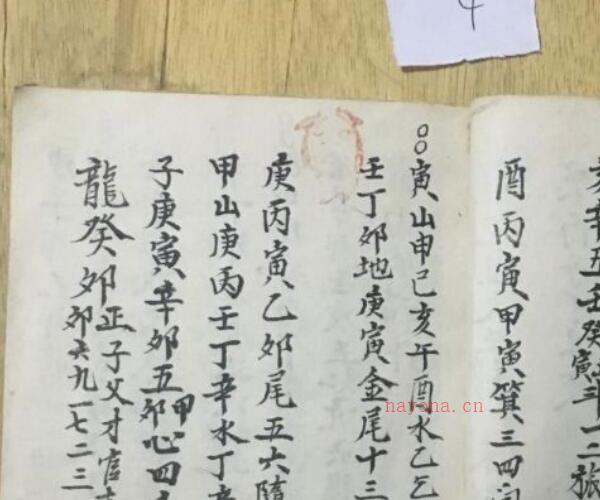 4
亥辛五壬癸寅
酉丙寅甲寅箕三四
○○寅山申己亥午酉水乙
壬丁卯地庚寅金尾十三
庚丙寅乙卯尾五六隨
甲山庚丙壬丁辛水丁
子庚寅辛卯五甲卯心四
龍癸卯正子父才官
卯六九一七二三
nayona.cn